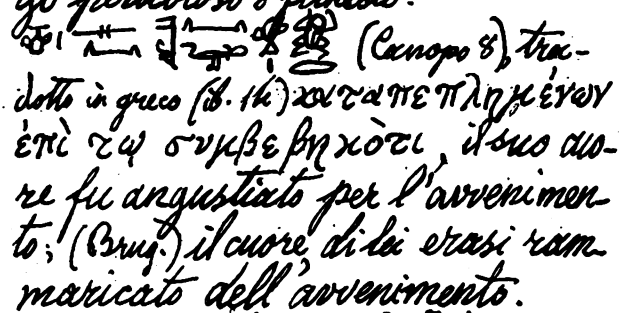 (Canopo 8), tra-
dotto in greco (ib. 14) καταπεπλημένων
ἐπὶ τῷ συμβεβηκότι, il suo cuo-
re fu angustiato per l'avvenimen-
to; (Brug.) il cuore di lei erasi ram-
maricato dell'avvenimento.